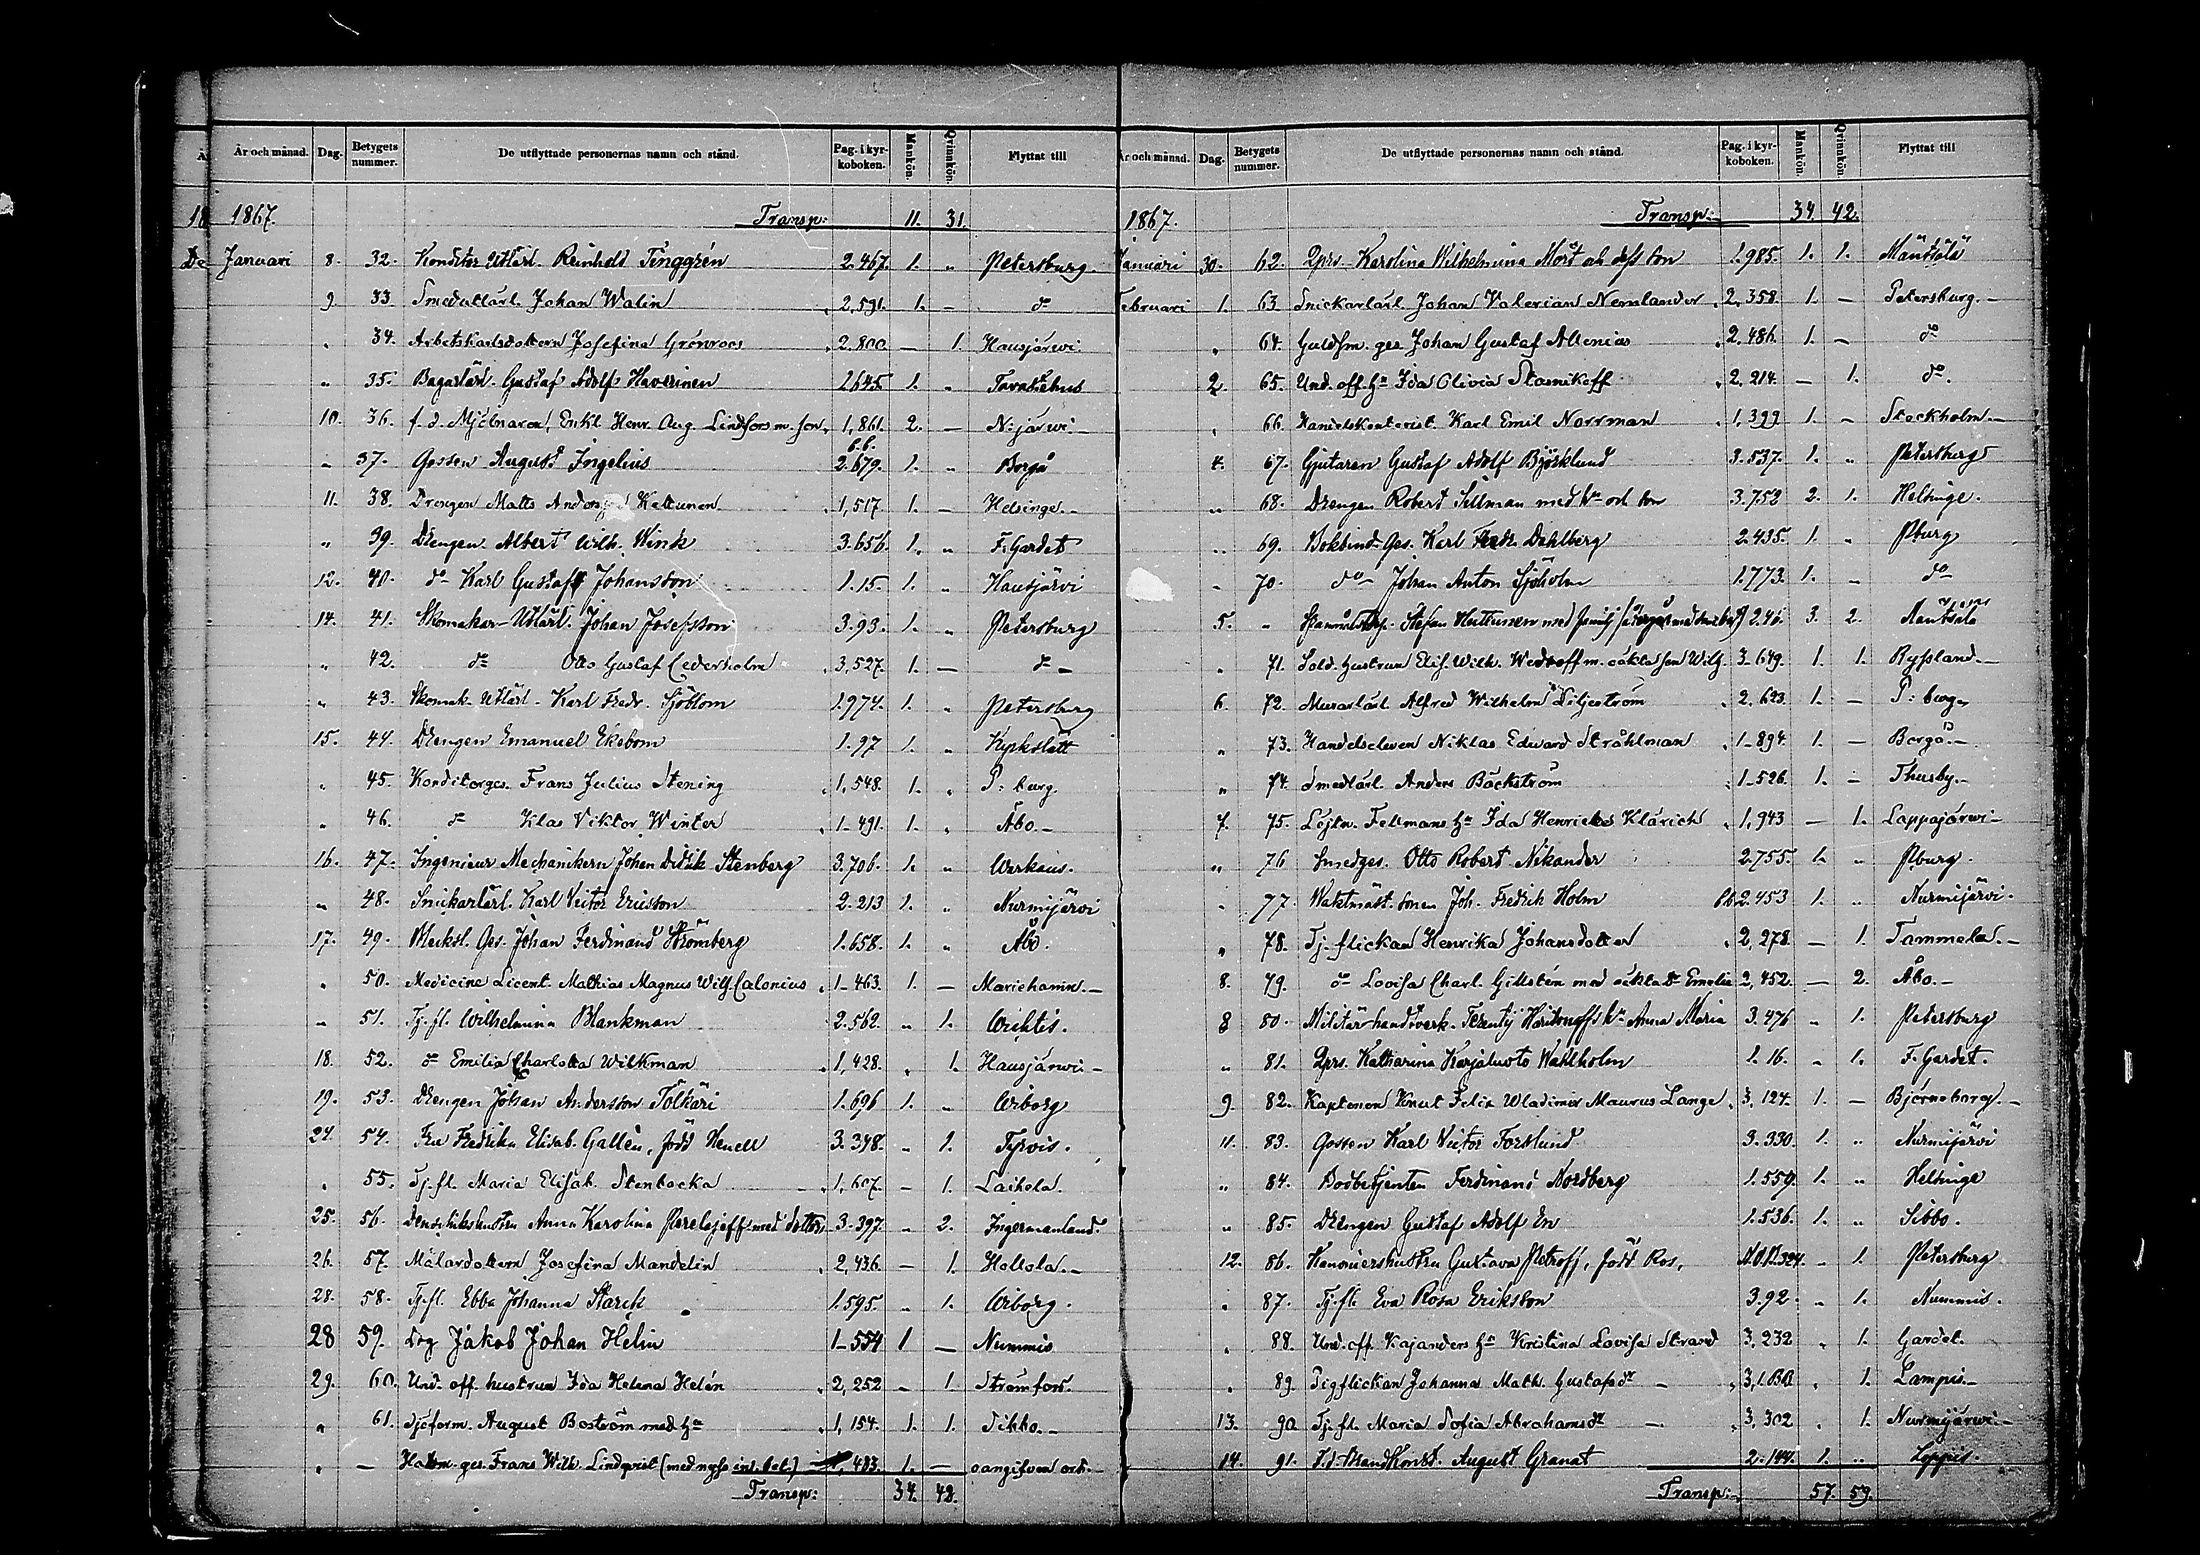 År och månad. Dag. Betygets nummer. De utflyttade personernas namn och stånd. Pag. i kyrkoboken. Mankön. Qvinnkön. Flyttat till
1867. Transp: 11. 31.
Januari 8. 32. Konditor Utlärl. Reinhold Tenggrén 2.467. 1. " Petersburg.
9. 33. Smedutlärl. Johan Walin 2,591. 1. — do
" 34. Arbetskarlsdottern Josefina Grönroos 2.800 — 1. Hausjärwi.
" 35. Bagarlärl. Gustaf Adolf Haverinen 2.645. 1. " Tavastehus
10. 36. f. d. Mjölnaren, Enkl. Henr. Aug. Lindfors m. son 1,861. 2. — N:järwi
" 37. Gossen August Ingelius b.b. 2.679. 1. " Borgå
11. 38. Drengen Matts Andersson Kettunen 1,517. 1. — Helsinge.
" 39. Drengen Albert Wilh. Wink 3.656. 1. " F. Gardet
12. 40. do Karl Gustaf Johansson 1.15. 1. " Hausjärvi
14. 41. Skomakar-Utlärl. Johan Josefsson 3.93. 1. " Petersburg
" 42. do Otto Gustaf Cederholm 3,527. 1. — do
" 43. Skomak. Utlärl. Karl Fredr. Sjöblom 1.974. 1. " Petersburg
15. 44. Drengen Emanuel Ekebom 1.97 1. " Kyrkslätt
" 45. Konditorges. Frans Julius Stening 1,548. 1. " P:burg.
" 46. do Klas Viktor Winter 1-491. 1. " Åbo.
16. 47. Ingenieur Mechanikern Johan Didrik Stenberg 3.706. 1. " Warkaus.
" 48. Snickarlärl. Karl Victor Ericsson 2.213 1. " Nurmijärvi
17. 49. Wecksl. Ges. Johan Ferdinand Strömberg 1.658. 1. " Åbo.
" 50. Medicine Licent. Mathias Magnus Wilh. Calonius 1-463. 1. — Mariehamn.
" 51. Tj. fl. Wilhelmina Blankman 2.562. " 1. Wichtis.
18. 52. do Emilia Charlotta Wilkman 1,428. " 1. Hausjärwi
19. 53. Drengen Johan Andersson Tölkäri 1.696 1. " Wiborg
24. 54. Fru Fredrika Elisab. Gallén, född Henell 3.348. " 1. Tyrvis.
" 55. Tj. fl. Maria Elisab. Stenbacka 1,607. — 1. Laihela.
25. 56. Denschikshustru Anna Karolina Perelejeff med dotter 3.397. " 2. Ingermanland.
26. 57. Målardottern Josefina Mandelin 2,436. — 1. Hollola.
28. 58. Tj. fl. Ebba Johanna Starck 1.595. " 1. Wiborg.
28 59. Drg Jakob Johan Helin 1-554 1 — Nummis
29. 60. Und. off. hustrun Ida Helena Helén 2,252 — 1. Strömfors.
" 61. Sjöform. August Boström med ha 1,154. 1. 1. Sibbo.
" — Hattm. ges. Frans Wilh. Lindqvist (med nysa int. bet.) 483. 1. — oangifven ort.
Transp: 34. 42.
År och månad. Dag. Betygets nummer. De utflyttade personernas namn och stånd. Pag. i kyrkoboken. Mankön. Qvinnkön. Flyttat till
1867. Transp: 34. 42.
Januari 30. 62. Karolina Wilhelmina Mört och dess son 1.985. 1. 1. Mäntsälä
Februari 1. 63 Snickarlärl. Johan Valerian Nemlander 2,358. 1. — Petersburg.
" 64. Guldsm. ges. Johan Gustaf Allenius 2.486. 1. — do
2. 65. Und. off. ha Ida Olivia Stasnikoff 2,214. — 1. do.
" 66. Handelskontorist. Karl Emil Norrman 1,399 1. — Stockholm.
4. 67. Gjutaren Gustaf Adolf Björklund 3.537. 1. " Petersburg
" 68. Drengen Robert Sillman med ha och son 3.752 2. 1. Helsinge.
" 69. Bokbind. Ges. Karl Fredr. Dahlberg 2.435. 1. " Pburg
" 70. do Johan Anton Sjöholm 1.773. 1. " do
5. " Stefan Huttunen med familj 2.46. 3. 2. Mäntsälä
" 71. Sold. hustrun Elis. Wilh. Wedroff m. oäkta son Wilh. 3-649. 1. 1. Ryssland.
6. 72. Murarlärl. Alfred Wilhelm Liljeström 2,623. 1. — P:burg
" 73. Handelseleven Niklas Edward Stråhlman 1-894. 1. — Borgå.
" 74. Smedlärl. Anders Bäckström 1.526. 1. — Thusby.
7. 75. Löjtn. Fellmans ha Ida Henriette Klärich 1,943 — 1. Lappajärwi
" 76 Smedges. Otto Robert Nikander 2.755. 1. " Pburg.
" 77. Waktmäst. sonen Joh. Fredrik Holm bb 2.453 1. " Nurmijärvi.
" 78. Tj. flickan Henrika Johansdotter 2,278. — 1. Tammela.
8. 79. do Lovisa Charl. Gillstén med oäkta dr Emelie 2,452. — 2. Åbo.
8 80. Militär handtverk. Terentij Haritonoffs ha Anna Maria 3.476 " 1. Petersburg
" 81. Katharina Karjaluoto Wahlholm 1.16. " 1. F. Gardet.
9. 82. Kaptenen Knut Felix Wladimir Maurus Lange 3,124. 1. — Björneborg.
11. 83. Gossen Karl Victor Forslund 3.330. 1. " Nurmijärvi
" 84. Bodbetjenten Ferdinand Nordberg 1.559. 1. " Helsinge
" 85. Drengen Gustaf Adolf En 1.536. 1. " Sibbo.
12. 86. Kanoniershustru Gustava Petroff, född Ros, 324. " 1. Petersburg
" 87. Tj. fl. Eva Rosa Eriksson 3.92. " 1. Nummis.
" 88. Und. off. Kajanders ha Kristina Lovisa Strand 3,232 " 1. Gardet.
" 89 Pigflickan Johanna Math. Gustafsdr 3,1. " 1. Lampis.
13. 90 Tj. fl. Maria Sofia Abrahamsdr 3,302 " 1. Nurmijärwi
14. 91. F.d. Brandkonst. August Granat 2.144. 1. " Loppis.
Transp: 57. 59.